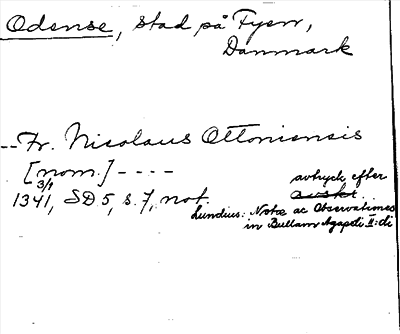 Odense, stad på Fyen,
Danmark
-- Fr. Nicolaus Ottoniensis
[nom.] - - - -
3/1
1341, SD 5, s. 7, not.
avtryck efter
avskr.
Lundius: Notæ ac Observationes
in Bullam Agapeti II:di